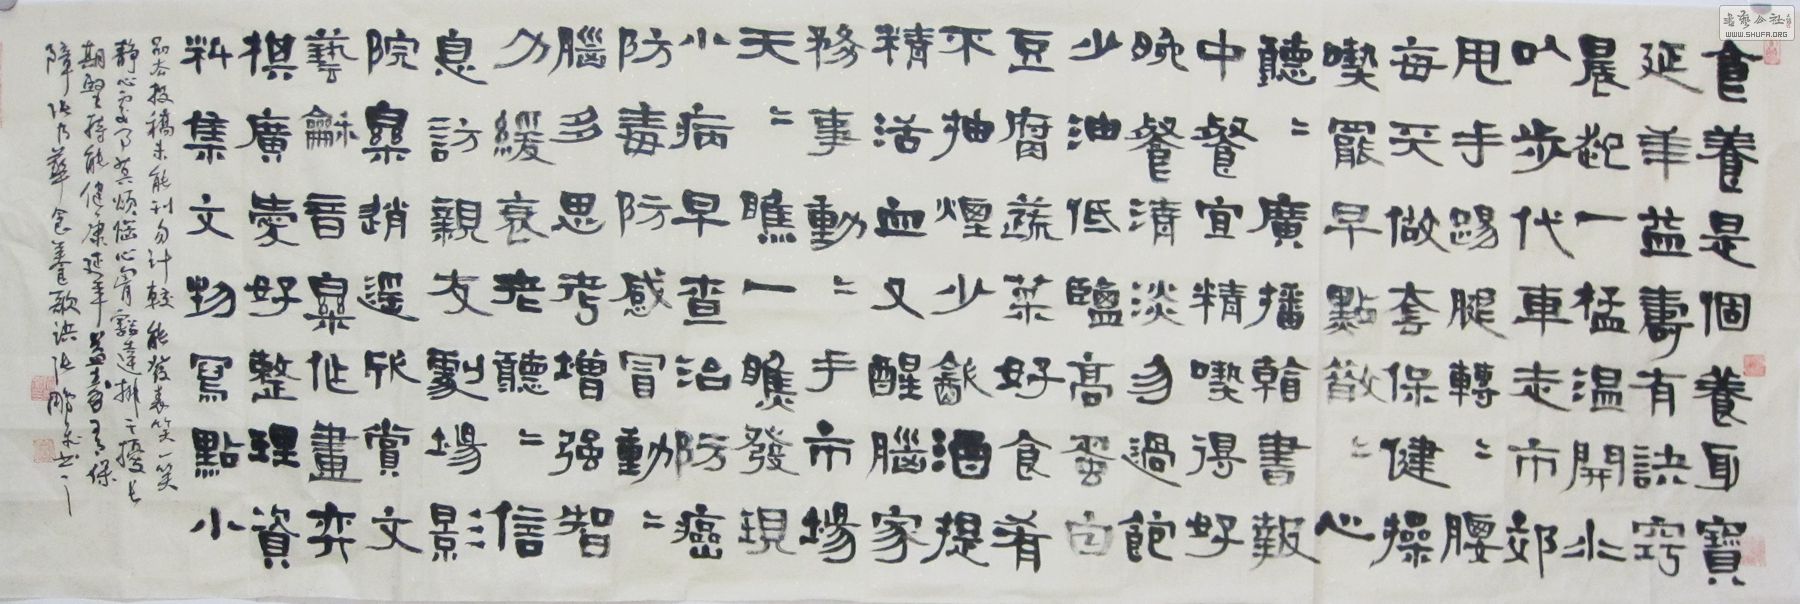 食養是個養身寶
延年益壽有訣竅
晨起一杯溫開水
以步代車走市郊
甩手踢腿轉〻腰
每天做套保健操
喫罷早點散〻心
聽〻廣播翰書報
中餐宜精喫得好
晚餐清淡勿過飽
少油低鹽高蛋白
豆腐蔬菜好食肴
不抽煙少飲酒提
精活血又醒腦家
務事動〻手市場
天〻瞧一瞧發現
小病早查治防癌
防毒防感冒動〻
腦多思考增強智
力緩衰老聽〻信
息訪親友劇場影
院樂逍遙欣賞文
藝龢音樂作畫弈
棋廣愛好整理資
料集文物寫點小
品去投稿未能刊勿計較能發表笑一笑
靜心處事莫煩惱心胸豁達排干擾長
期堅持能健康延年益壽有保
障張乃華食養歌訣張鵬書
書藝公社
WWW.SHUFA.ORG